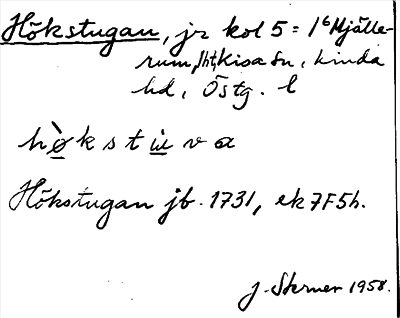 Hökstugan, jr kol 5 = 1⁶ Mjälle-
rum, lht, Kisa sn, Kinda
hd, Östg. l
hø̀kstu̇va
Hökstugan jb. 1731, ek 7F5h.
J. Sterner 1958.